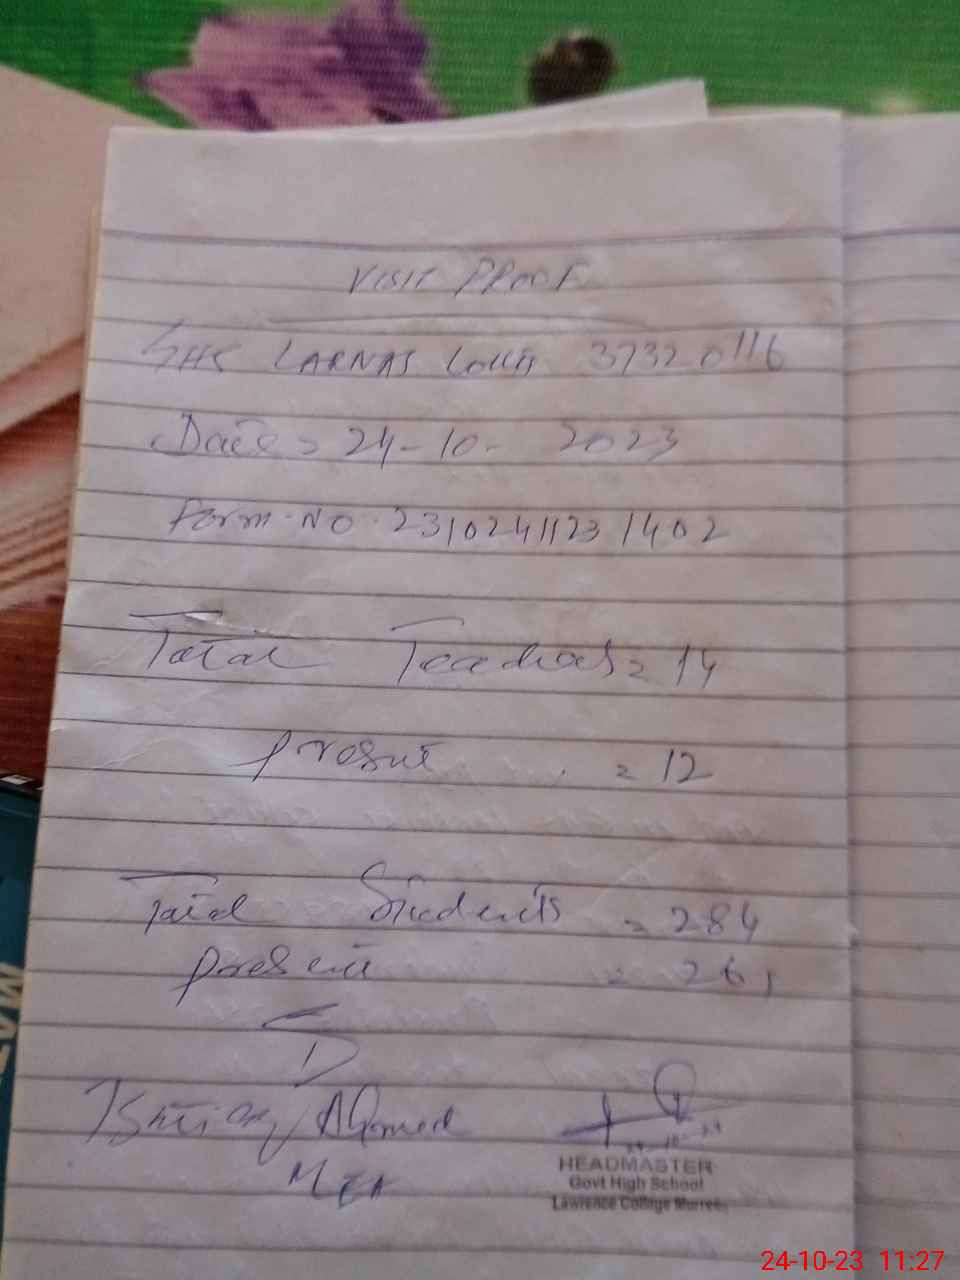 VISIT PROOF
GHS LARNAS COLLG 37320116
Date = 24-10-2023
Form-NO. 2310241123 1402
Total Teachers = 14
present = 12
Total Students = 284
present = 261
Ahmed
MEA
24-10-23
HEADMASTER
Govt High School
Lawrence College Murree
24-10-23 11:27